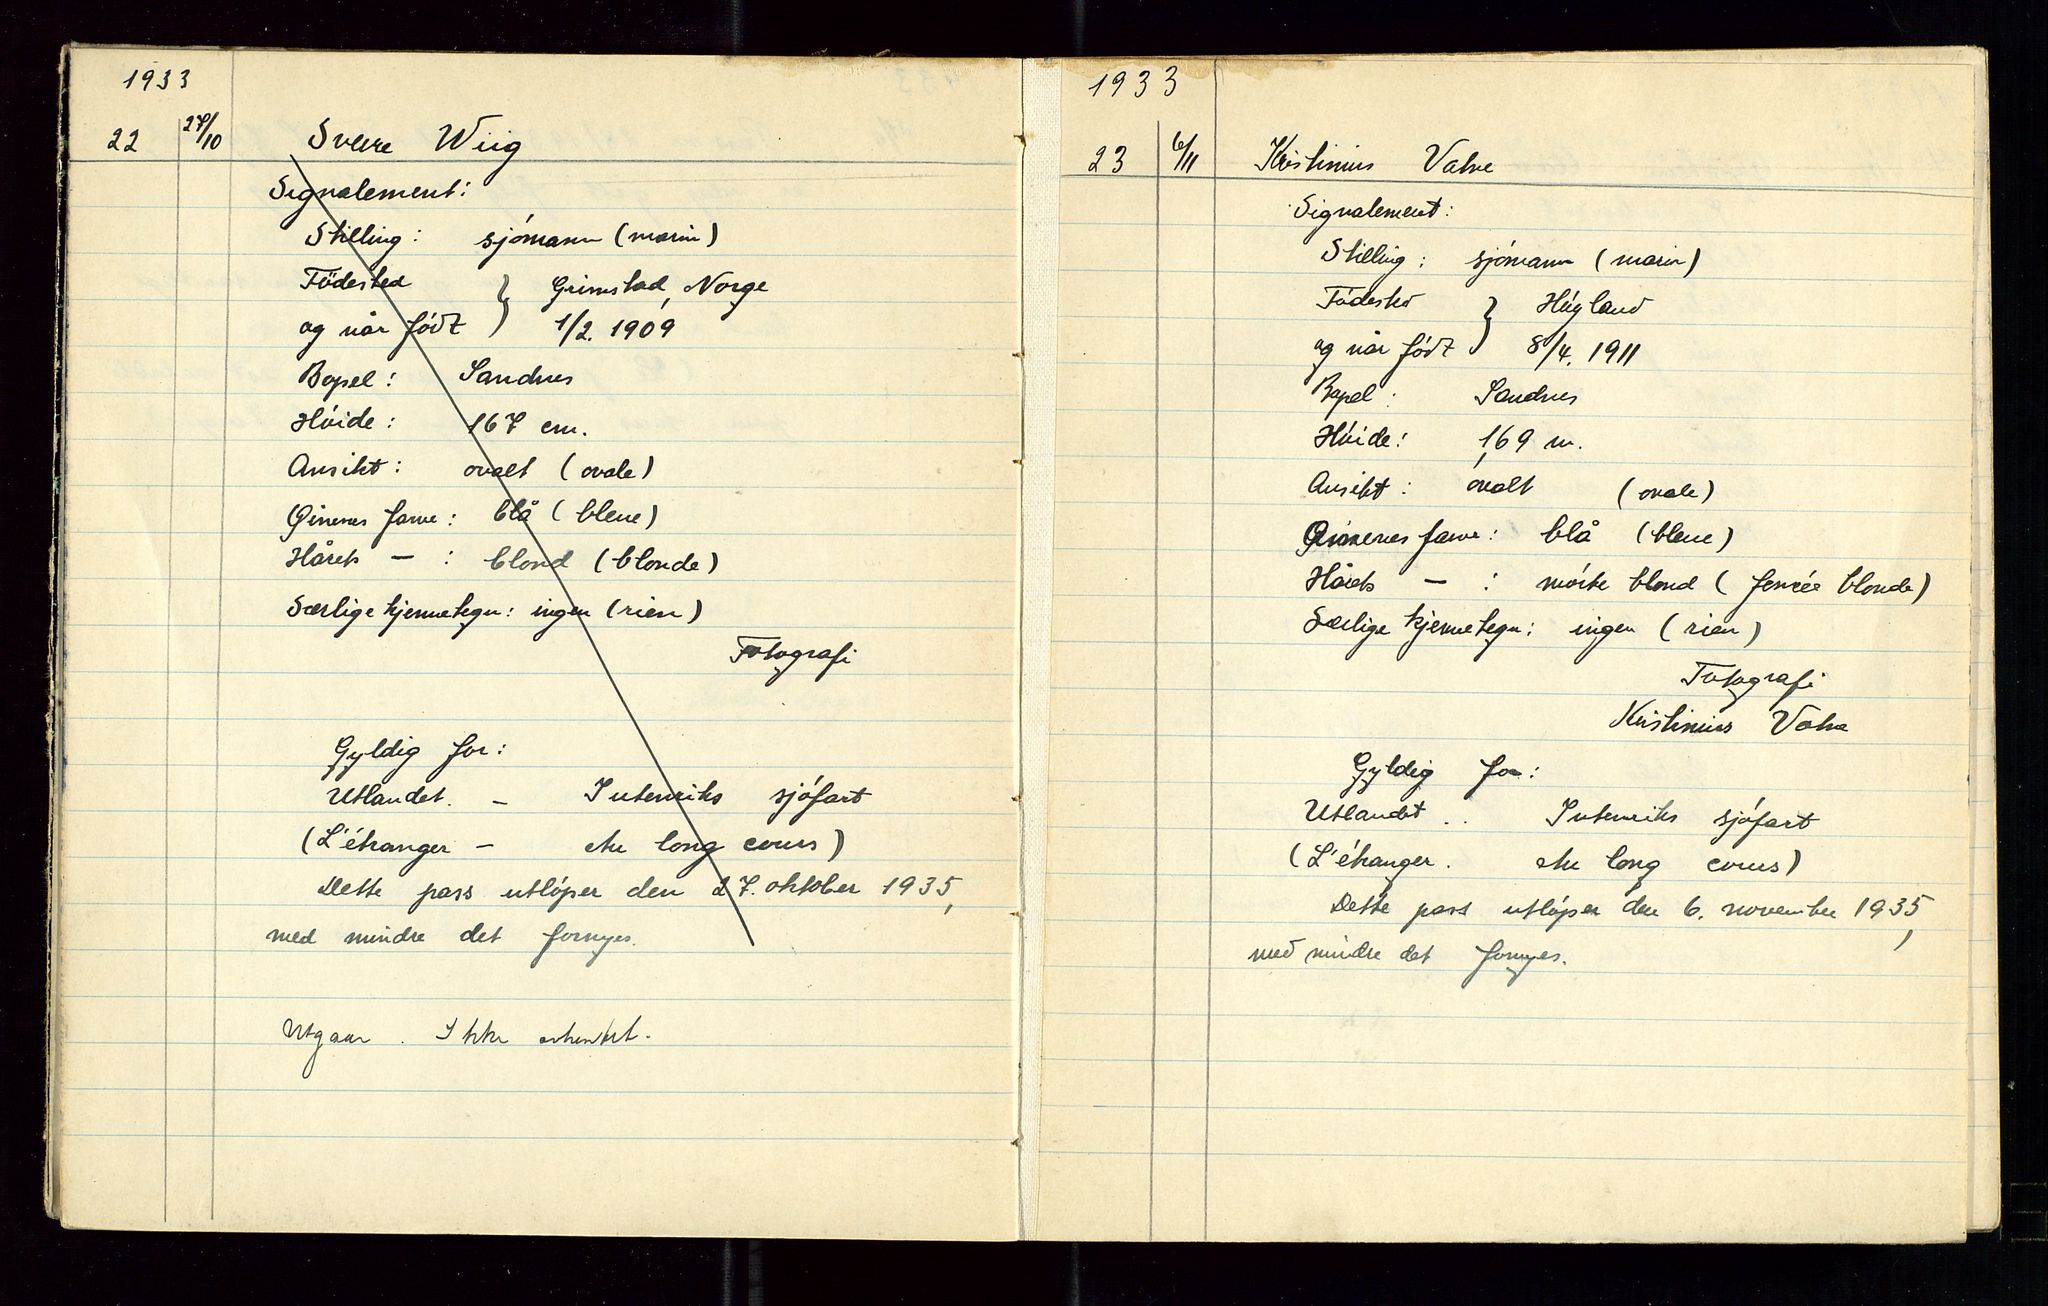 1933
22 27/10 Sverre Wiig
Signalement:
Stilling: sjómann (marin)
Födested
og når födt } Grimstad, Norge
1/2. 1909
Bopel: Sandnes
Hóide: 167 cm.
Ansikt: ovalt (ovale)
Öinenes farve: blå (bleue)
Hårets — : blond (blonde)
Særlige kjennetegn: ingen (rien)
Fotografi
Gyldig for:
Utlandet. — Innenriks sjófart
(L'étranger — au long cours)
Dette pass utlóper den 27. oktober 1935,
med mindre det fornyes.
Utgaar. Ikke avhentet.
1933
23 6/11 Kristinius Vatne
Signalement:
Stilling: sjómann (marin)
Fódested
og når fódt } Hóyland
8/4. 1911
Bopel: Sandnes
Hóide: 1,69 m.
Ansikt: ovalt (ovale)
Öinenes farve: blå (bleue)
Hårets — : mórke blond (foncée blonde)
Særlige kjennetegn: ingen (rien)
Fotografi
Kristinius Vatne
Gyldig for:
Utlandet .. Innenriks sjófart
(L'étranger. au long cours)
Dette pass utlóper den 6. november 1935,
med mindre det fornyes.